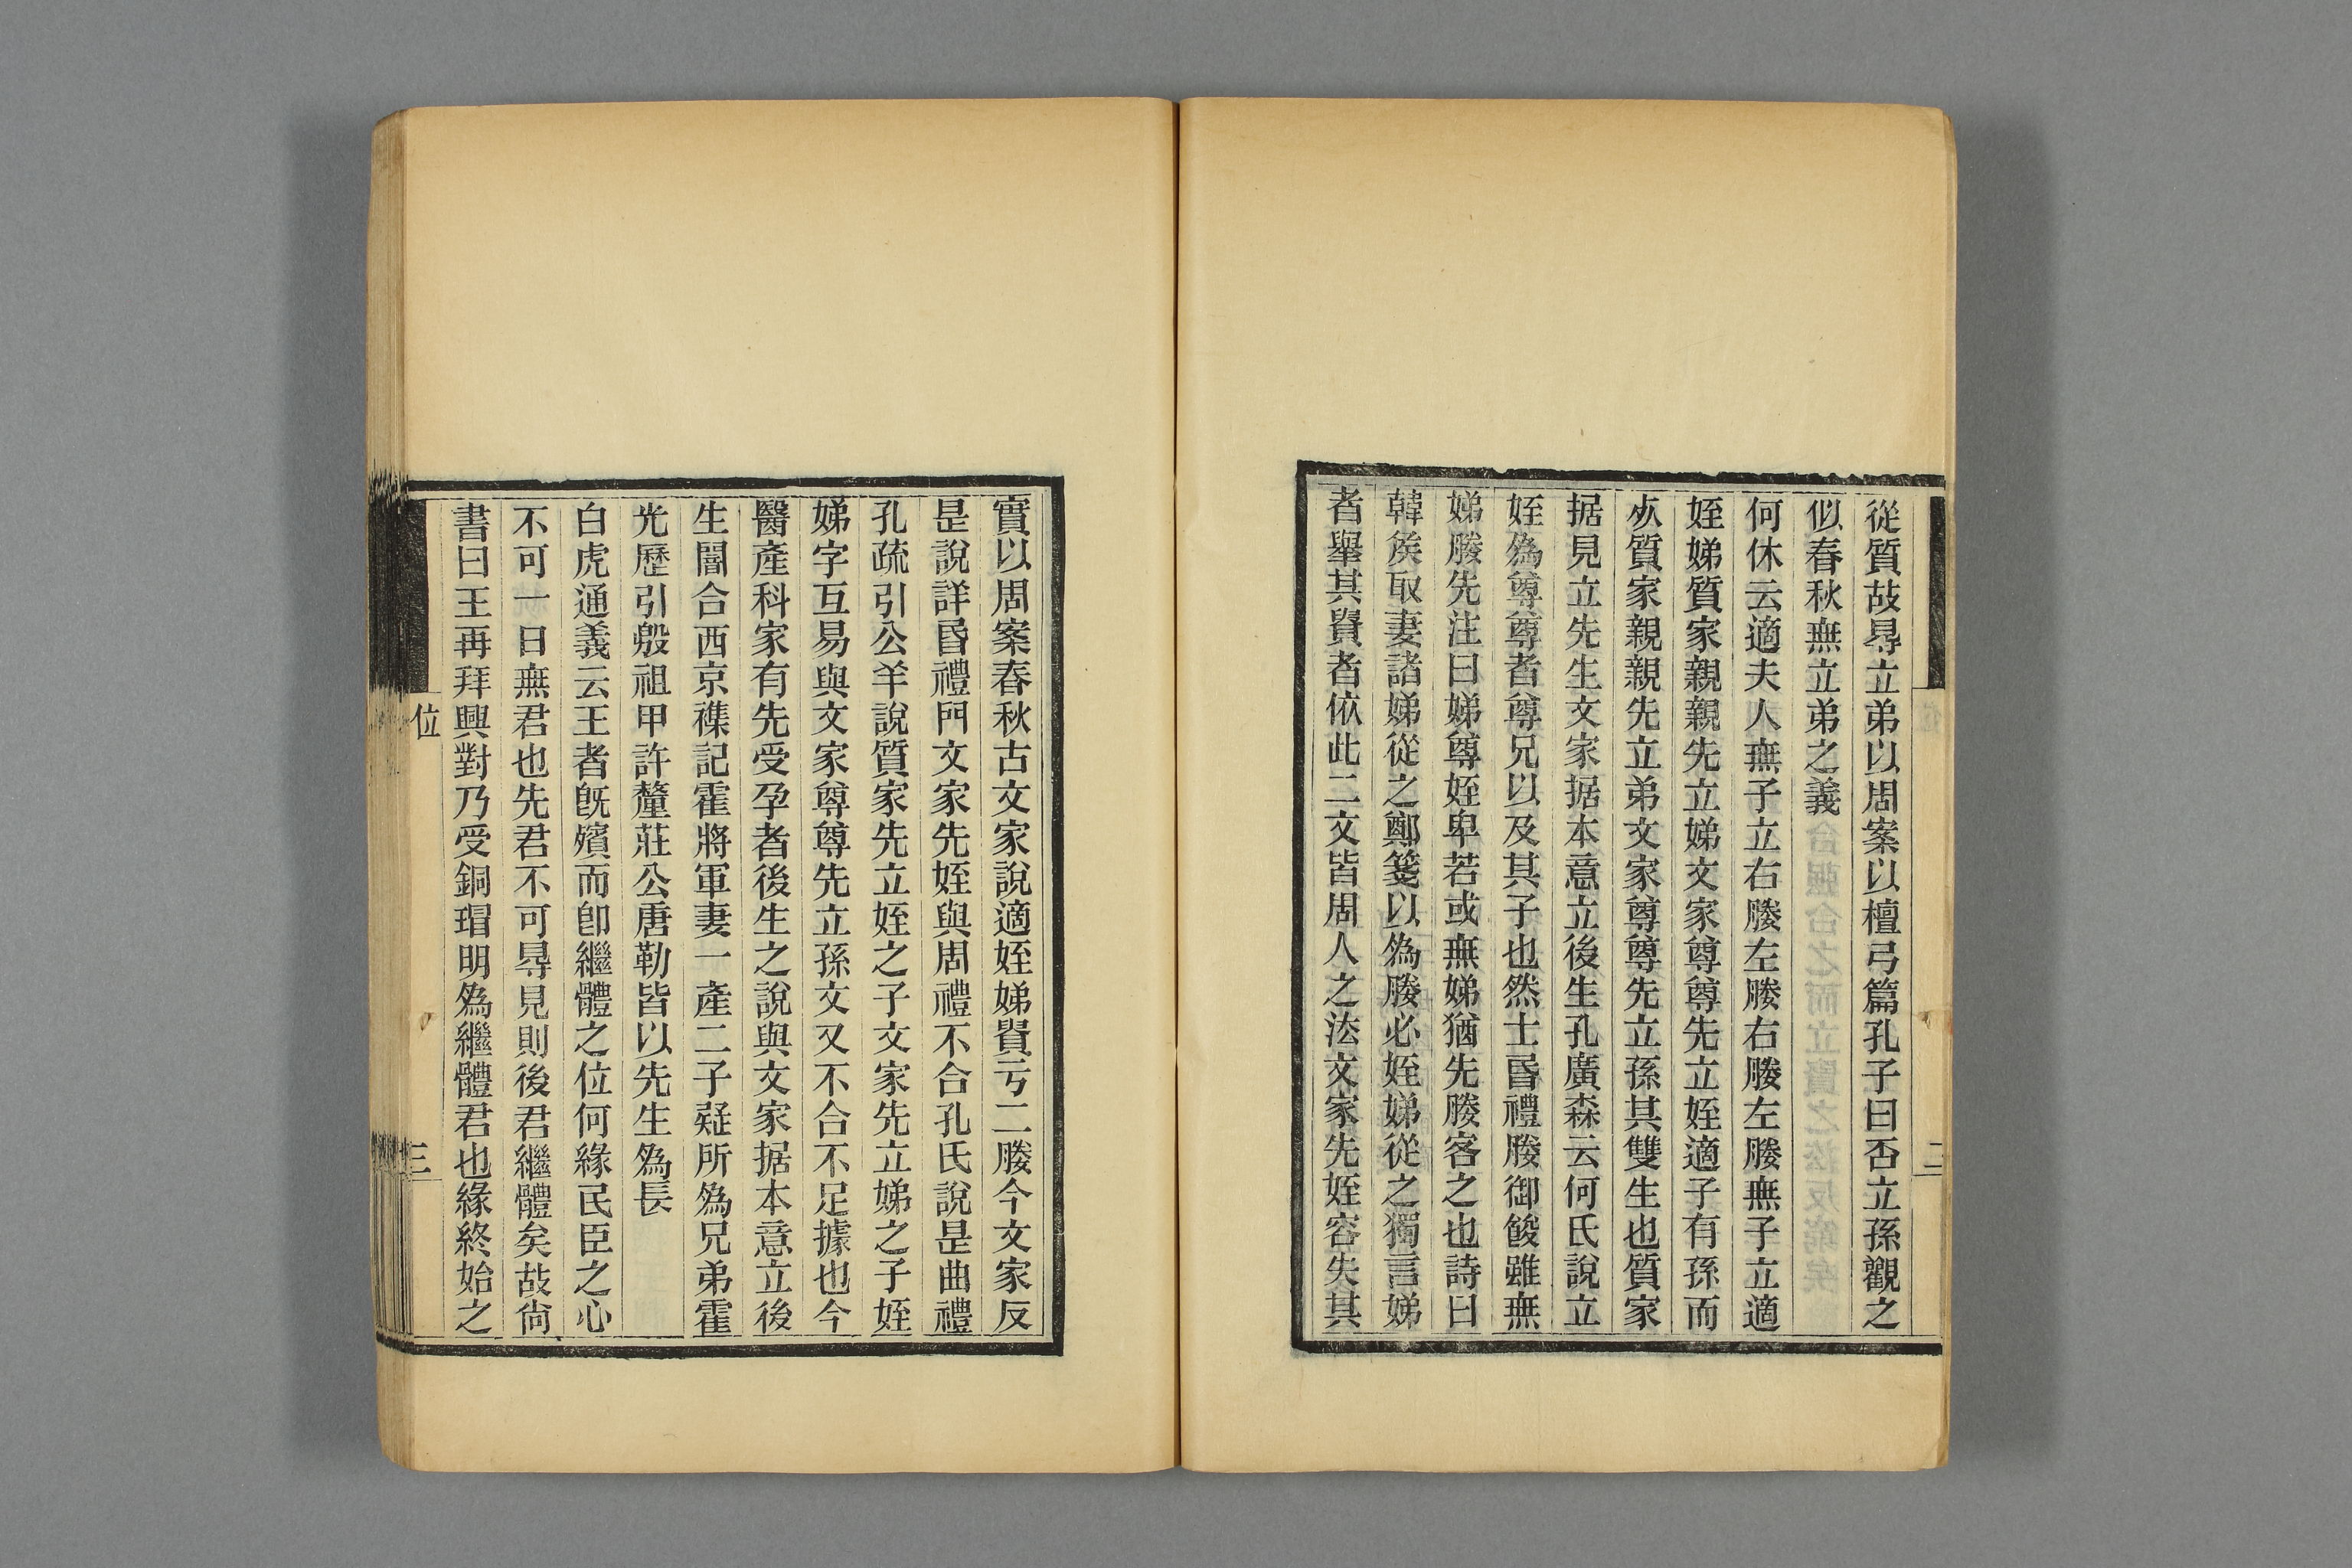 從質故㝵立弟以周案以檀弓篇孔子曰否立孫觀之
佀春秋無立弟之義
何休云適夫人無子立右媵左媵右媵左媵無子立適
姪娣質家親親先立娣文家尊尊先立姪適子有孫而
𣦸質家親親先立弟文家尊尊先立孫其雙生也質家
据見立先生文家据本意立後生孔廣森云何氏說立
姪為尊尊者尊兄以及其子也然士昬禮媵御餕雖無
娣媵先注曰娣尊姪卑若或無娣猶先媵客之也詩曰
韓矦取妻諸娣從之鄭箋以為媵必姪娣從之獨言娣
者舉其貴者依此二文皆周人之法文家先姪容失其
二
實以周案春秋古文家說適姪娣貴亏二媵今文家反
是說詳昬禮門文家先姪與周禮不合孔氏說是曲禮
孔疏引公羊說質家先立姪之子文家先立娣之子姪
娣字互易與文家尊尊先立孫文又不合不足據也今
醫產科家有先受孕者後生之說與文家据本意立後
生闇合西京襍記霍將軍妻一產二子疑所為兄弟霍
光歷引殷祖甲許釐莊公唐勒皆以先生為長
白虎通義云王者旣殯而卽繼體之位何緣民臣之心
不可一日無君也先君不可㝵見則後君繼體矣故尙
書曰王再拜興對乃受銅瑁明為繼體君也緣終始之
位
三